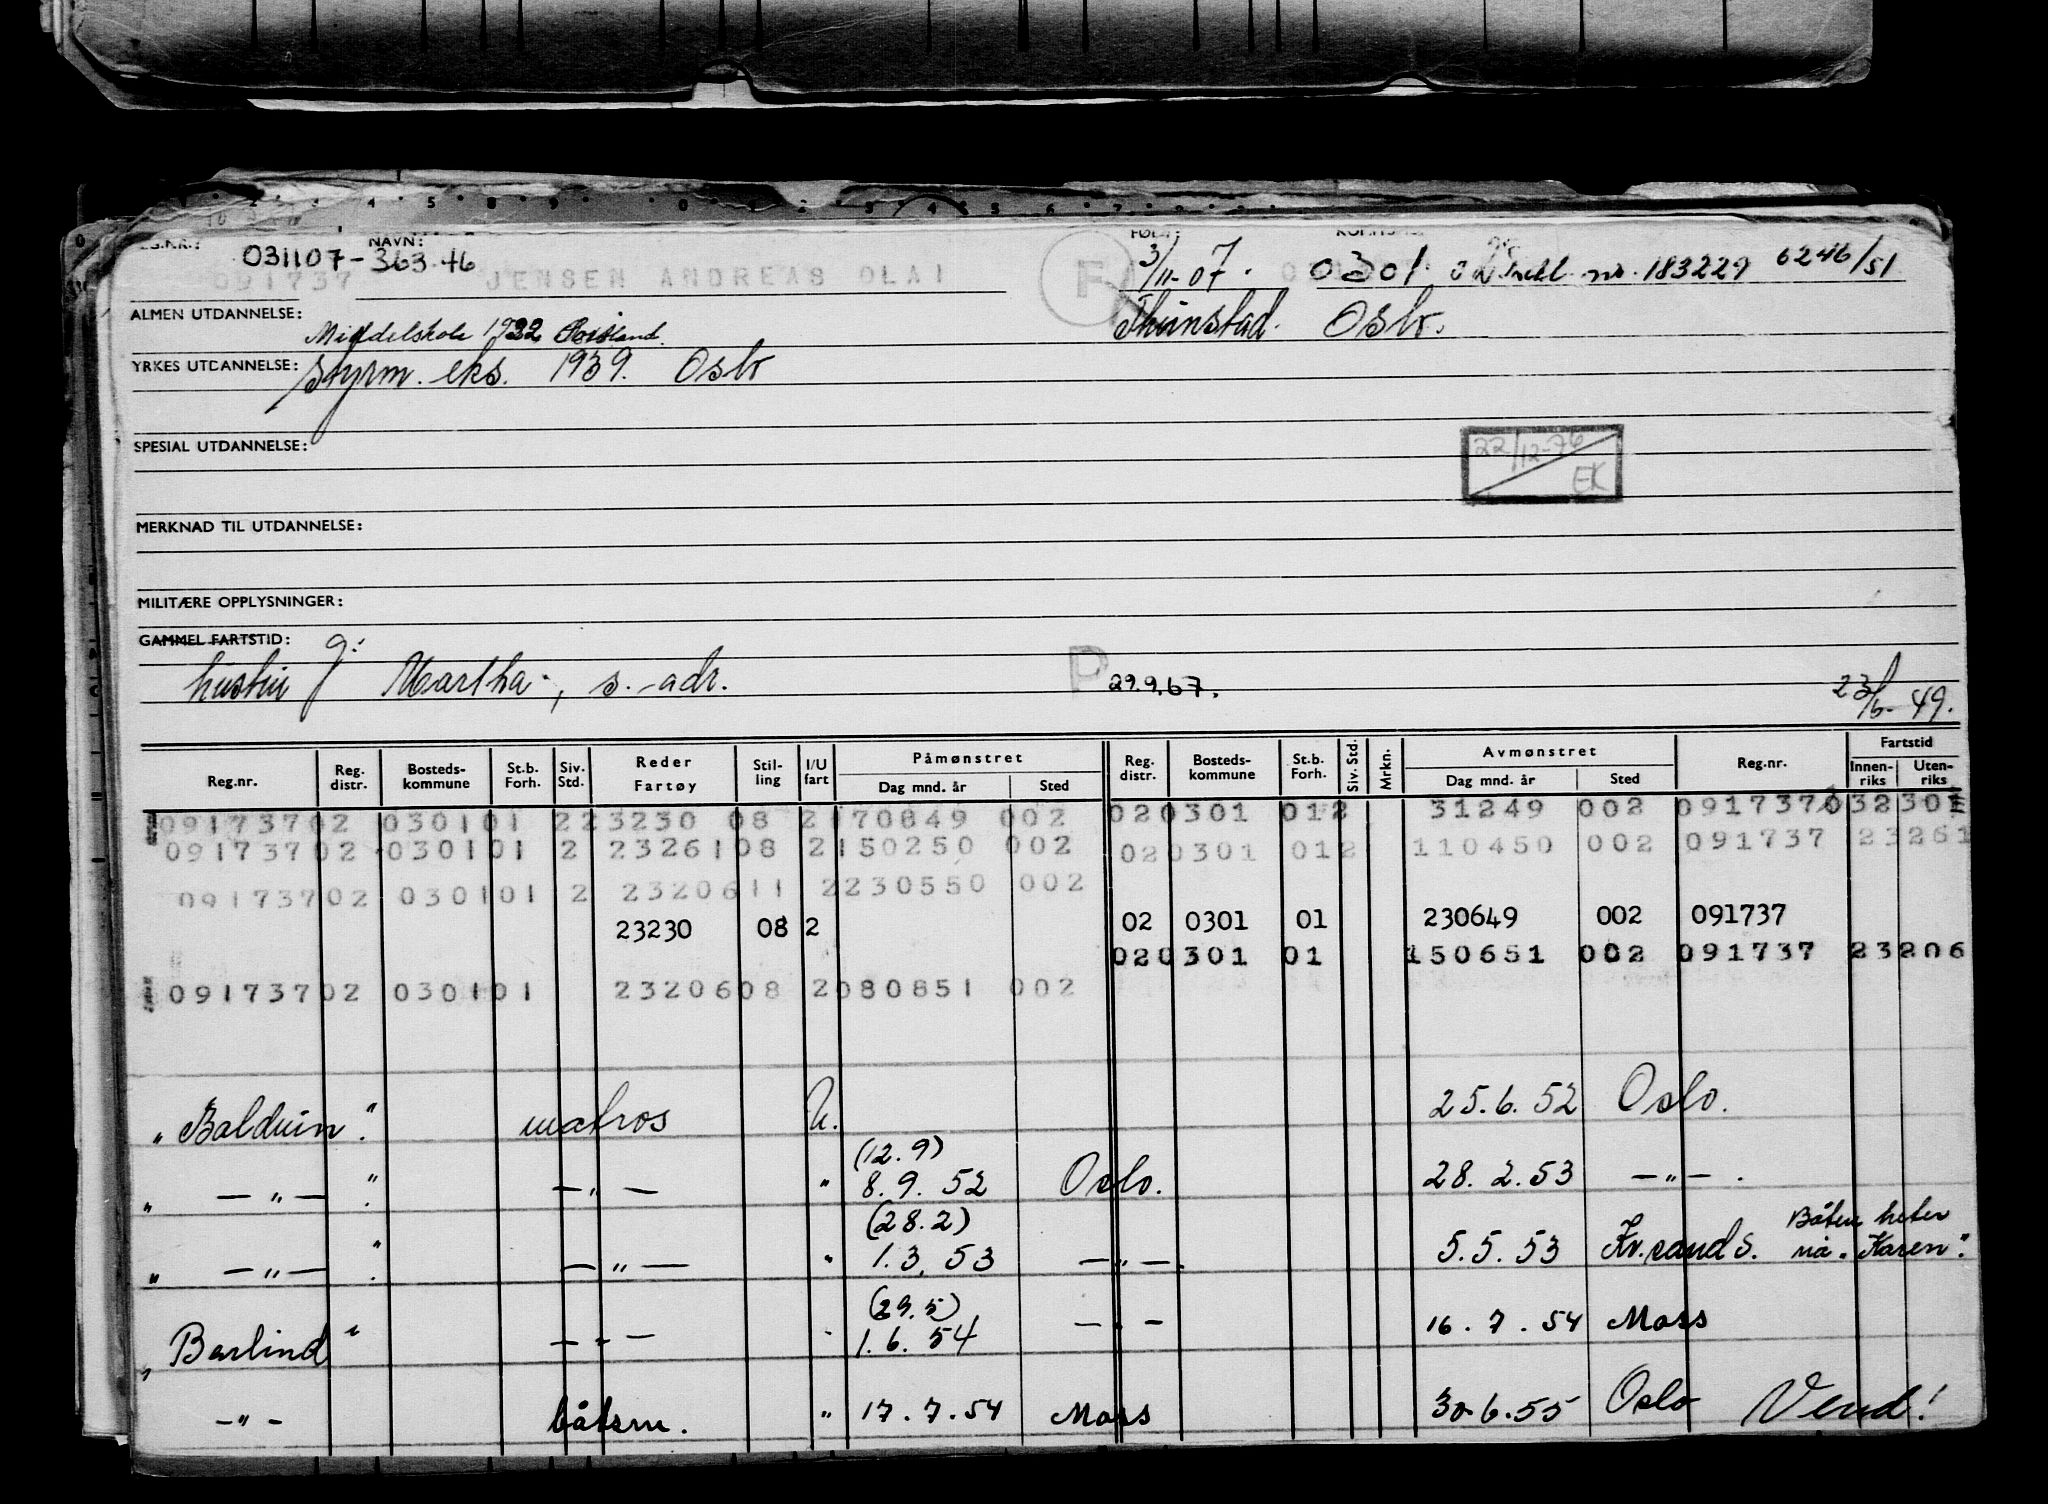 NAVN: FØDT:
031107-363.46 3/11-07. 0301. nr. 183229 6246/51
091737 JENSEN ANDREAS OLAI F
ALMEN UTDANNELSE: Middelskole 1922 Oslo.
YRKES UTDANNELSE: styrm. eks. 1939. Oslo
SPESIAL UTDANNELSE: 22/12-76 EK
MERKNAD TIL UTDANNELSE:
MILITÆRE OPPLYSNINGER:
GAMMEL FARTSTID: g:
hustru Martha, s. adr. P 29.9.67. 23/6-49.
Påmønstret Avmønstret Fartstid
Reg.nr. Reg. distr. Bosteds- kommune St.b. Forh. Siv. Std. Reder Fartøy Stil- ling I/U fart Dag mnd. år Sted Reg. distr. Bosteds- kommune St.b. Forh. Siv. Std. Mrkn. Dag mnd. år Sted Reg.nr. Innen- riks Uten- riks
091737 02 0301 01 2 23230 08 2 170849 002 02 0301 01 2 31249 002 091737
091737 02 0301 01 2 23261 08 2 150250 002 02 0301 01 2 110450 002 091737 23261
091737 02 0301 01 2 23206 11 2 230550 002
23230 08 2 02 0301 01 230649 002 091737
02 0301 01 150651 002 091737 23206
091737 02 0301 01 23206 08 2 080851 002
"Balduin". matros U. 25.6.52 Oslo.
" —"— ". —"— " (12.9) 8.9.52 Oslo. 28.2.53 —"—.
" —"— ". —"— " (28.2) 1.3.53 —"—. 5.5.53 Kr.sand S. Båten heter nå "Karen".
"Barlind" —"— " (29.5) 1.6.54 —"— 16.7.54 Moss
—"— båtsm. " 17.7.54 Moss 30.6.55 Oslo Vend!